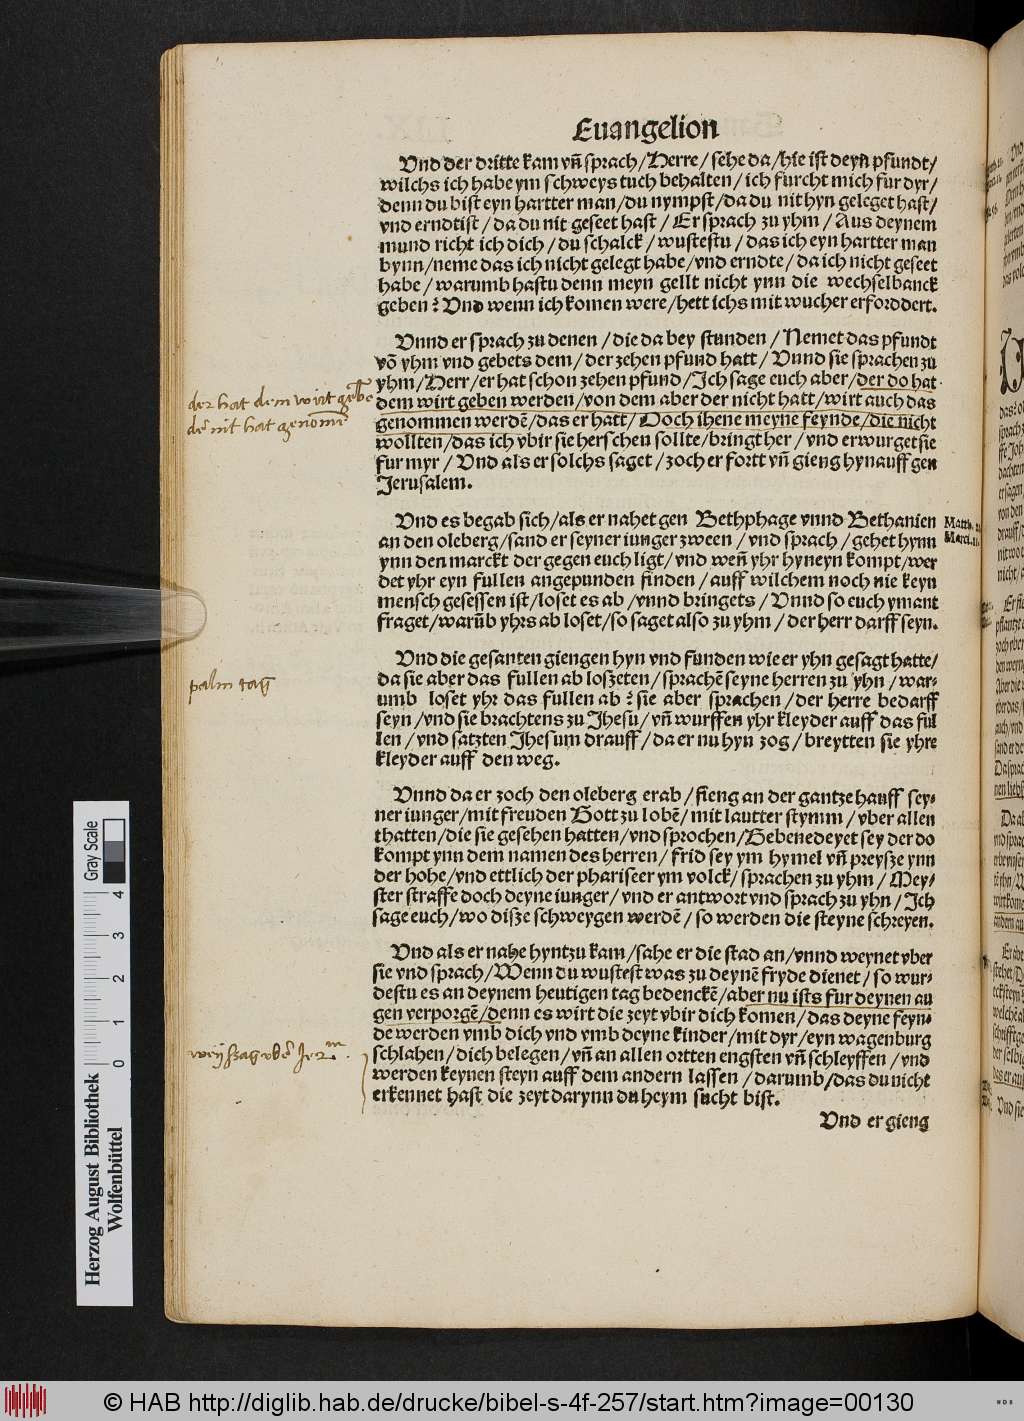 Euangelion
Vnd der dritte kam vñ sprach/Herre/sehe da/hie ist deyn pfundt/
wilchs ich habe ym schweys tuch behalten/ich furcht mich fur dyr/
denn du bist eyn hartter man/du nympst/da du nit hyn geleget hast/
vnd erndtist/da du nit geseet hast/Er sprach zu yhm/Aus deynem
mund richt ich dich/du schalck/wustestu/das ich eyn hartter man
bynn/neme das ich nicht gelegt habe/vnd erndte/da ich nicht geseet
habe/warumb hastu denn meyn gellt nicht ynn die wechselbanck
geben? Vnd wenn ich komen were/hett ichs mit wucher erforddert.
Vnnd er sprach zu denen/die da bey stunden/Nemet das pfundt
võ yhm vnd gebets dem/der zehen pfund hatt/Vnnd sie sprachen zu
yhm/Herr/er hat schon zehen pfund/Ich sage euch aber/der do hat
dem wirt geben werden/von dem aber der nicht hatt/wirt auch das
genommen werdẽ/das er hatt/Doch ihene meyne feynde/die nicht
wollten/das ich vbir sie herschen sollte/bringt her/vnd erwurget sie
fur myr/Vnd als er solchs saget/zoch er fortt vñ gieng hynauff gen
Jerusalem.
der hat dem wirt gebẽ
dẽ nit hat genomẽ
Vnd es begab sich/als er nahet gen Bethphage vnnd Bethanien
an den oleberg/sand er seyner iunger zween/vnd sprach/gehet hynn
ynn den marckt der gegen euch ligt/vnd weñ yhr hyneyn kompt/wer
det yhr eyn fullen angepunden finden/auff wilchem noch nie keyn
mensch gesessen ist/loset es ab/vnnd bringets/Vnnd so euch ymant
fraget/warũb yhrs ab loset/so saget also zu yhm/der herr darff seyn.
Matth. 21
Marci. 11.
Vnd die gesanten giengen hyn vnd funden wie er yhn gesagt hatte/
da sie aber das fullen ab loszeten/sprachẽ seyne herren zu yhn/war-
umb loset yhr das fullen ab? sie aber sprachen/der herre bedarff
seyn/vnd sie brachtens zu Jhesu/vñ wurffen yhr kleyder auff das ful
len/vnd satzten Jhesum drauff/da er nu hyn zog/breytten sie yhre
kleyder auff den weg.
palm tag
Vnnd da er zoch den oleberg erab/fieng an der gantze hauff sey-
ner iunger/mit freuden Gott zu lobẽ/mit lautter stymm/vber allen
thatten/die sie gesehen hatten/vnd sprochen/Gebenedeyet sey der do
kompt ynn dem namen des herren/frid sey ym hymel vñ preysze ynn
der hohe/vnd ettlich der phariseer ym volck/sprachen zu yhm/Mey-
ster straffe doch deyne iunger/vnd er antwort vnd sprach zu yhn/Ich
sage euch/wo disze schweygen werdẽ/so werden die steyne schreyen.
Vnd als er nahe hyntzu kam/sahe er die stad an/vnnd weynet vber
sie vnd sprach/Wenn du wustest was zu deynẽ fryde dienet/so wur-
destu es an deynem heutigen tag bedenckẽ/aber nu ists fur deynen au
gen verporgẽ/denn es wirt die zeyt vbir dich komen/das deyne feyn-
de werden vmb dich vnd vmb deyne kinder/mit dyr/eyn wagenburg
schlahen/dich belegen/vñ an allen ortten engsten vñ schleyffen/vnd
werden keynen steyn auff dem andern lassen/darumb/das du nicht
erkennet hast die zeyt darynn du heym sucht bist.
weyssag vbẽ Jerm.
Vnd er gieng
Herzog August Bibliothek
Wolfenbüttel
Gray Scale
0 1 2 3 4
© HAB http://diglib.hab.de/drucke/bibel-s-4f-257/start.htm?image=00130